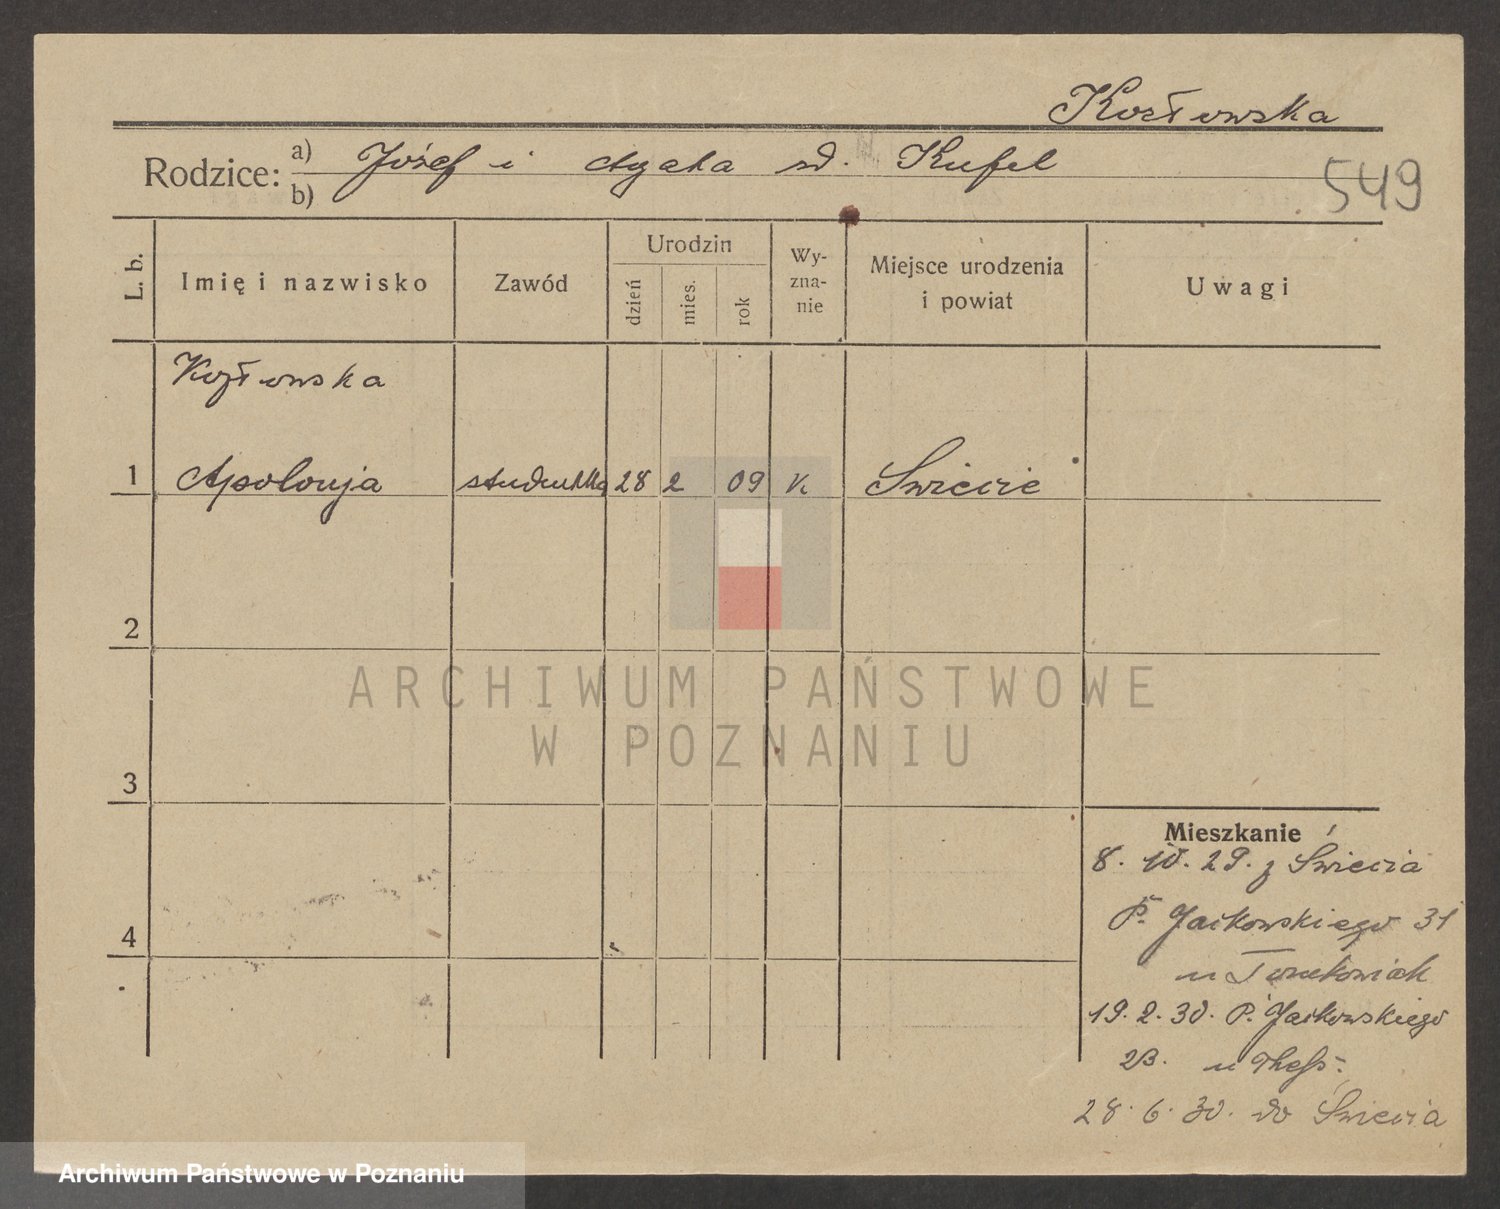 Kozłowska
Rodzice: a) Józef i Agata zd. Kufel
b)
549
L. b.
Imię i nazwisko
Zawód
Urodzin
dzień
mies.
rok
Wy-
zna-
nie
Miejsce urodzenia
i powiat
Uwagi
Kozłowska
1 Apolonja studentka 28 2 09 K Świecie
2
3
4
ARCHIWUM PAŃSTWOWE
W POZNANIU
Mieszkanie
8. 10. 29. z Świecia
P. Jackowskiego 31
u Tomkowiak
19. 2. 30. P. Jackowskiego
23. u
28. 6. 30. do Świecia
Archiwum Państwowe w Poznaniu